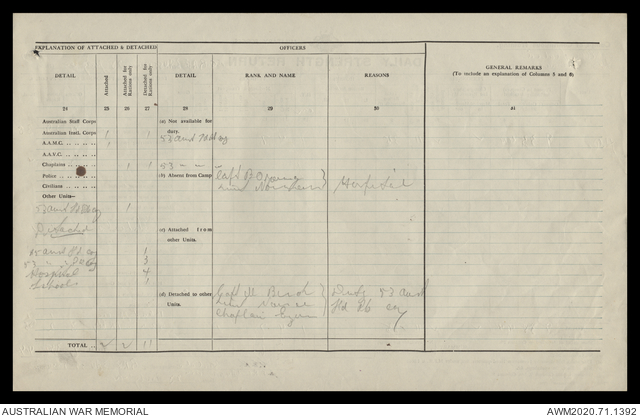 EXPLANATION OF ATTACHED & DETACHED
OFFICERS
GENERAL REMARKS
(To include an explanation of Columns 5 and 6)
DETAIL
Attached
Attached for Rations only
Detached for Rations only
DETAIL
RANK AND NAME
REASONS
24 25 26 27 28 29 30 31
Australian Staff Corps
(a) Not available for duty.
Australian Instl. Corps 1
A.A.M.C. 1
A.A.V.C.
Chaplains 1 1
53 " "
Police
(b) Absent from Camp
Capt
Hospital
Civilians
Lieut
Other Units—
1
Detached
(c) Attached from other Units.
1
3
Hospital 4
Schools 1
(d) Detached to other Units.
Capt W Birch
Duty 53 Aust
Lieut
Fd Pk Coy
Chaplain
TOTAL 2 2 11
AUSTRALIAN WAR MEMORIAL
AWM2020.71.1392